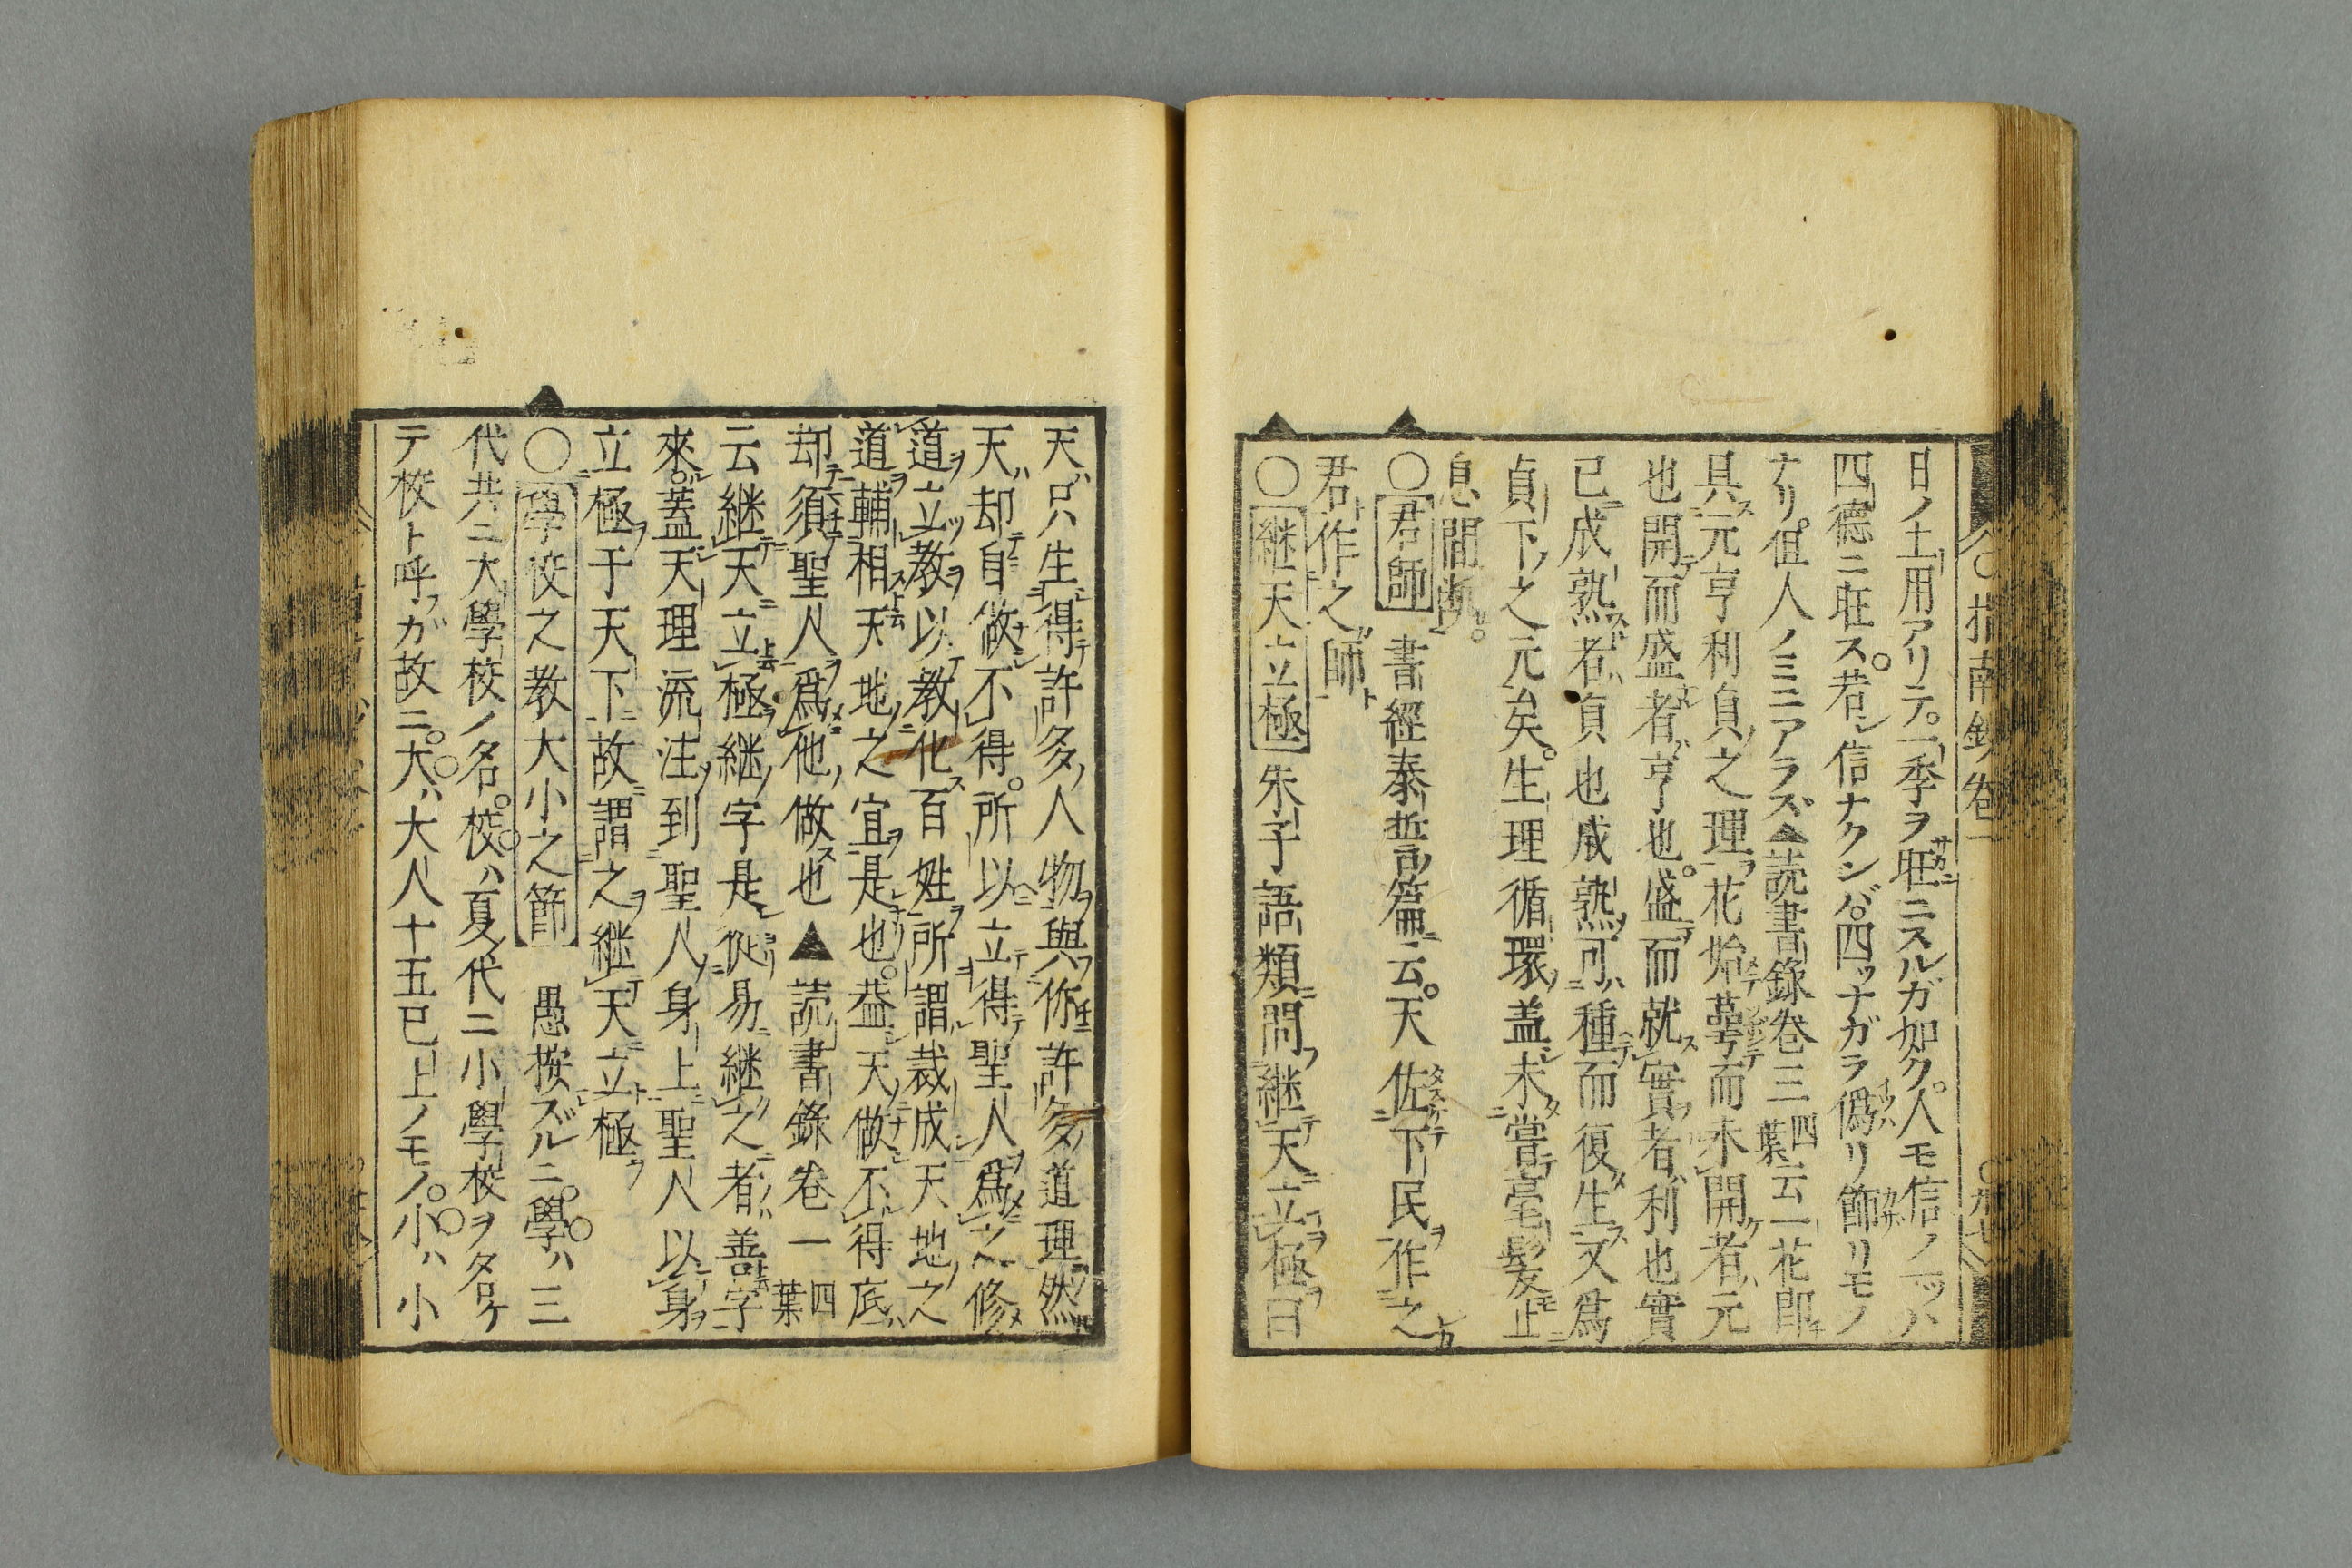 指南鈔卷一
日ノ土用アリテ。一季ヲ旺ニスルガ如ク。人モ信ノ一ツハ
四德ニ旺ス。若シ信ナクンバ。四ツナガラ僞リ飾リモノ
ナリ。但人ノミニアラズ▲読書録卷三四葉云一花即
具元亨利貞之理花始蕚而未開者元
也開而盛者亨也。盛而就實者利也實
已成熟者貞也成熟可種而復生又爲
貞下之元矣。生理循環蓋未嘗毫髪止
息間断。
○君師 書經泰誓篇云。天佐下民作之
君作之師
○継天立極 朱子語類問継天立極曰
天只生得許多人物與你許多道理然
天却自做不得。所以立得聖人爲之修
道立教以教化百姓所謂裁成天地之
道輔相天地之宜是也。蓋天做不得底
却須聖人爲他做也▲読書錄卷一四葉
云継天立極継字是從易継之者善字
來。蓋天理流注到聖人身上聖人以身
立極于天下故謂之継天立極
○學校之教大小之節 愚按ズルニ。學ハ三
代共ニ大學校ノ名。校ハ夏ノ代ニ小學校ヲ名ケ
テ校ト呼フガ故ニ。大ハ大人十五已上ノモノ。小ハ小